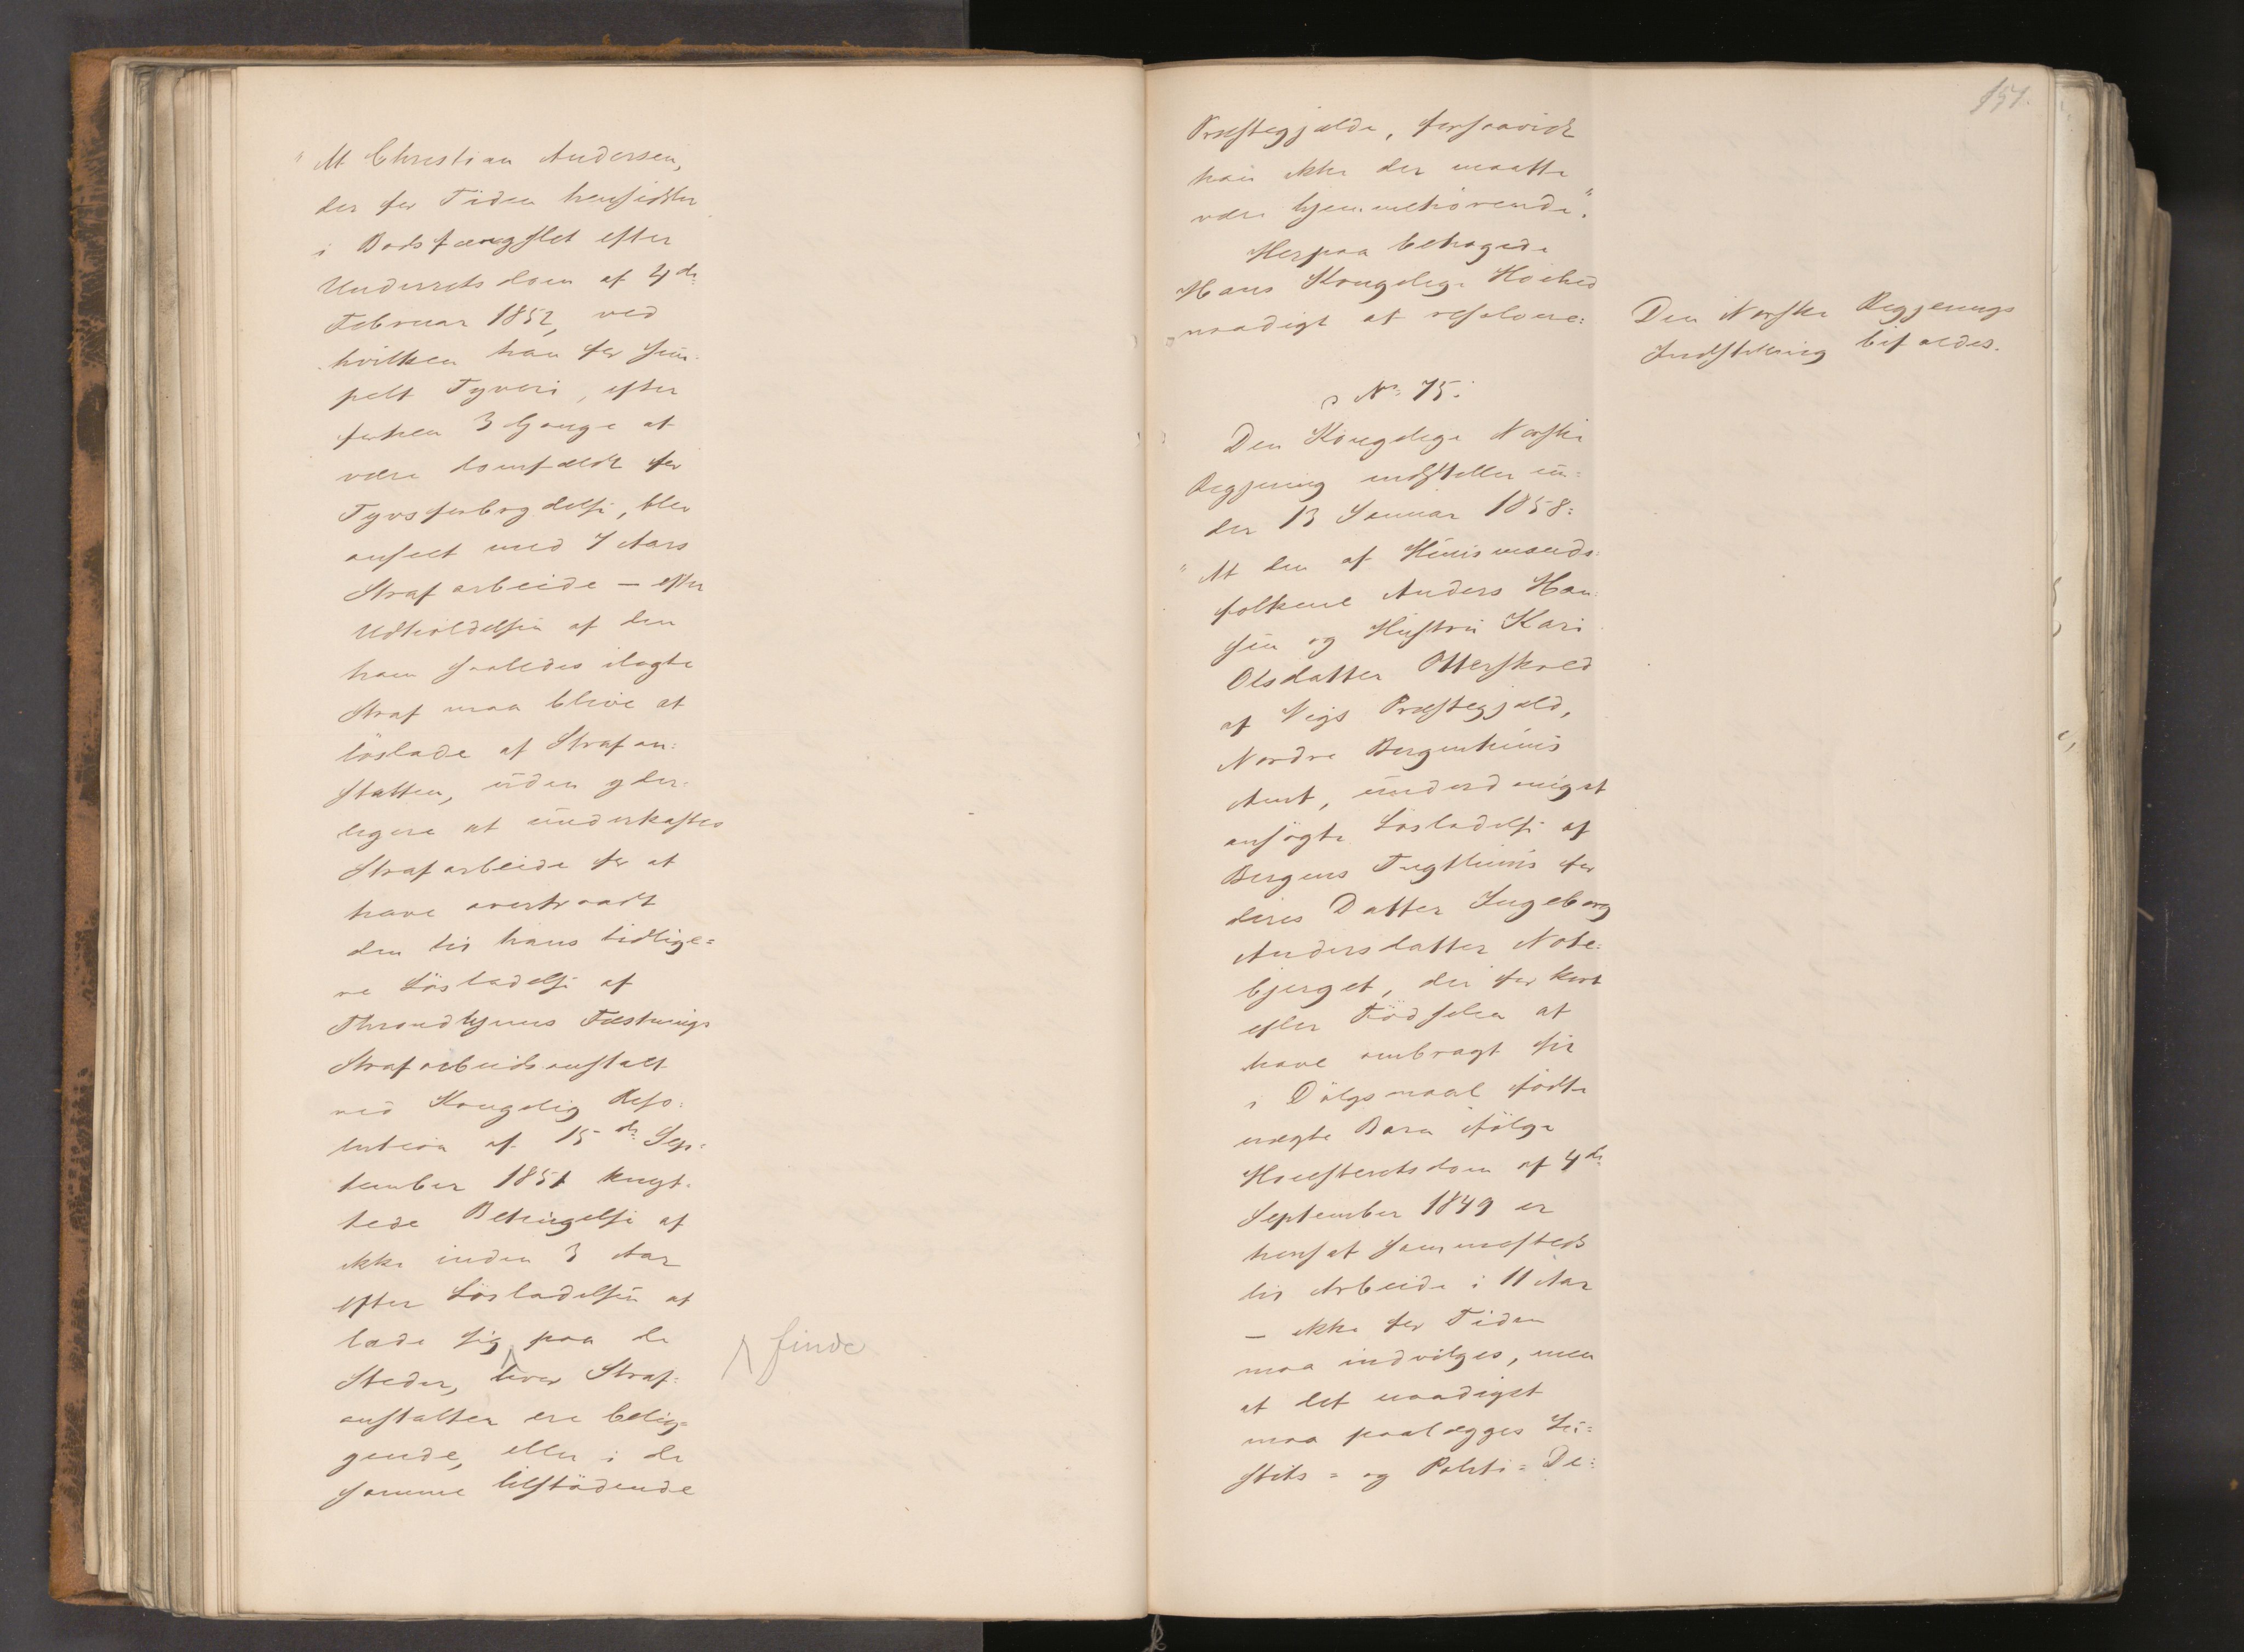 "At Christian Andersen,
der for Tiden hensidder
i Bodsfængslet efter
Underretsdom af 4de
Februar 1852, ved
hvilken han for sim-
pelt Tyveri, efter
forhen 3 Gange at
være domfældt for
Tyvsforbrydelse, blev
anseet med 7 Aars
Strafarbeide – efter
Udholdelsen af den
ham saaledes ilagte
Straf maa blive at
löslade af Strafan-
stalten, uden yder-
ligere at underkastes
Strafarbeide for at
have overtraadt
den til hans tidlige=
re Lösladelse af
Throndhjems Fæstnings
Strafarbeidsanstalt
ved Kongelig Reso-
lution af 15de Sep-
tember 1851 knyt-
tede Betingelse af
ikke inden 3 Aar
efter Lösladelsen at
lade sig paa de
finde
Steder, hvor Straf-
anstalter ere belig=
gende, eller i de
samme tilstödende
151.
Præstegjælde, forsaavidt
han ikke der maatte
være hjemmehörende".
Herpaa behagede
Hans Kongelige Höihed
naadigt at resolvere:
Den Norske Regjerings
Indstilling bifaldes.
No 75.
Den Kongelige Norske
Regjering indstiller un-
der 13 Januar 1858:
"At den af Huusmands-
folkene Anders Han-
sen og Hustru Kari
Olsdatter Otterskred
af Vigs Præstegjæld,
Nordre Bergenhuus
Amt, underdanigst
ansögte Lösladelse af
Bergens Tugthuus for
deres Datter Ingeborg
Andersdatter Note-
bjerget, der for kort
efter Födselen at
have ombragt sit
i Dölgsmaal födte
uægte Barn ifölge
Höiesteretsdom af 4de
September 1849 er
hensat sammesteds
til Arbeide i 11 Aar
– ikke for Tiden
maa indvilges, men
at det naadigst
maa paalægges Ju=
stits= og Politi=De=